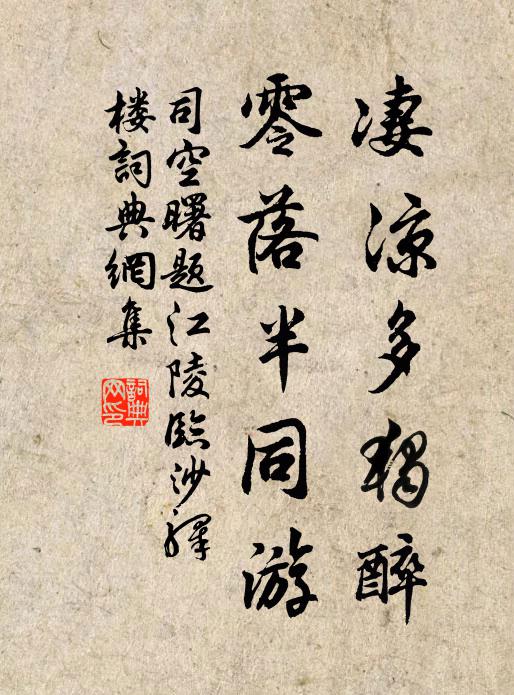 凄涼多獨醉
零落半同游
司空曙題江陵臨沙驛
樓詞典網集
詞典
网印